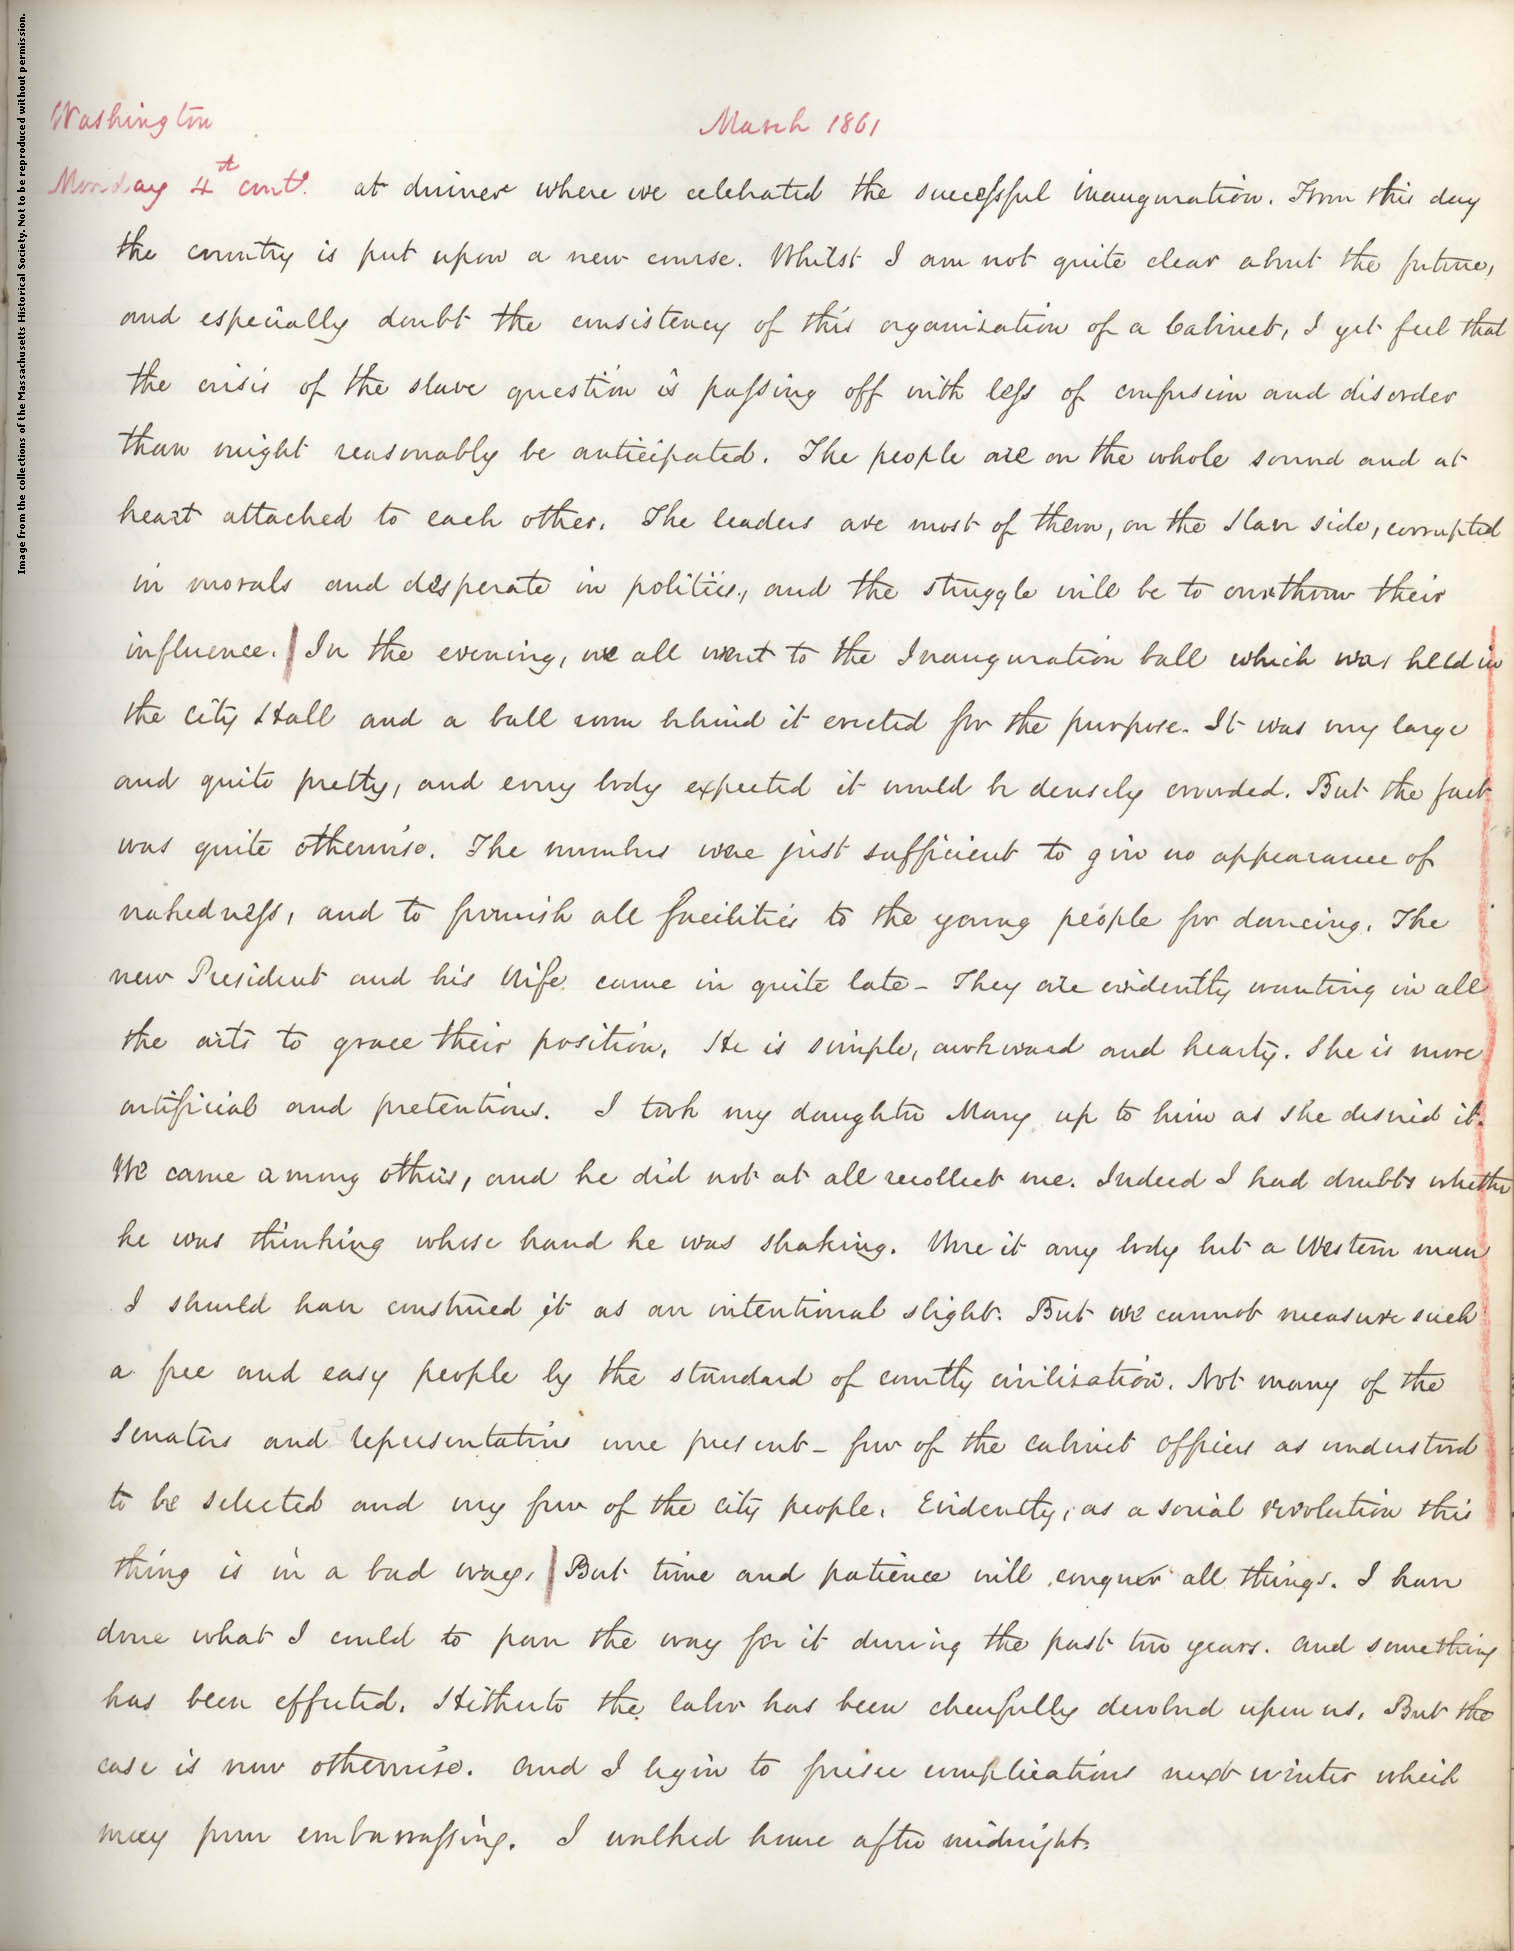 Image from the collections of the Massachusetts Historical Society. Not to be reproduced without permission.
Washington
March 1861
Monday 4th cont'd. at dinner where we celebrated the successful inauguration. From this day
the country is put upon a new course. Whilst I am not quite clear about the future,
and especially doubt the consistency of this organization of a Cabinet, I yet feel that
the crisis of the slave question is passing off with less of confusion and disorder
than might reasonably be anticipated. The people are on the whole sound and at
heart attached to each other. The leaders are most of them, on the slave side, corrupted
in morals and desperate in politics, and the struggle will be to overthrow their
influence. In the evening, we all went to the Inauguration ball which was held in
the City Hall and a ball room behind it erected for the purpose. It was very large
and quite pretty, and every body expected it would be densely crowded. But the fact
was quite otherwise. The numbers were just sufficient to give no appearance of
nakedness, and to furnish all facilities to the young people for dancing. The
new President and his Wife came in quite late - They are evidently wanting in all
the arts to grace their position. He is simple, awkward and hearty. She is more
artificial and pretentious. I took my daughter Mary up to him as she desired it.
We came among others, and he did not at all recollect me. Indeed I had doubts whether
he was thinking whose hand he was shaking. Were it any body but a Western man
I should have construed it as an intentional slight. But we cannot measure such
a free and easy people by the standard of courtly civilization. Not many of the
Senators and representatives were present - few of the cabinet officers as understood
to be selected and very few of the city people. Evidently, as a social revolution this
thing is in a bad way. But time and patience will conquer all things. I have
done what I could to pave the way for it during the past two years. And something
has been effected. Hitherto the labor has been cheerfully devolved upon us. But the
case is now otherwise. And I begin to foresee complications next winter which
may prove embarrassing. I walked home after midnight.